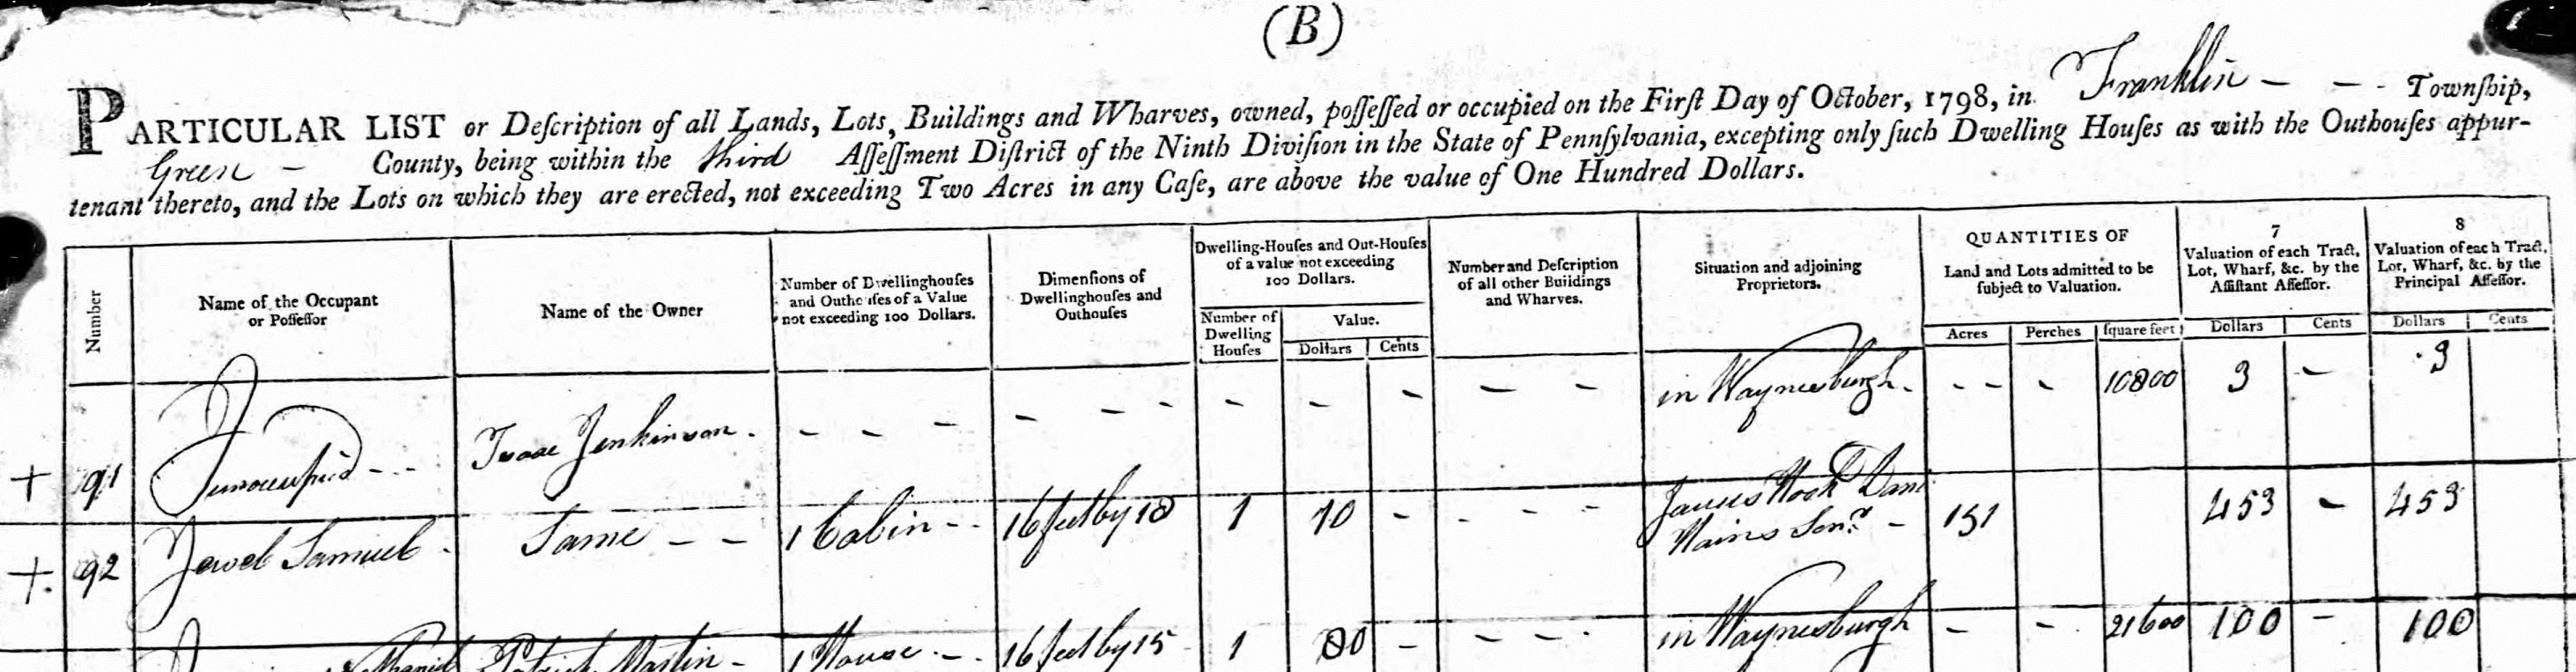 (B)
PARTICULAR LIST or Deſcription of all Lands, Lots, Buildings and Wharves, owned, poſſeſſed or occupied on the Firſt Day of October, 1798, in Franklin - - Townſhip,
Green - County, being within the third Aſſeſſment Diſtrict of the Ninth Diviſion in the State of Pennſylvania, excepting only ſuch Dwelling Houſes as with the Outhouſes appur-
tenant thereto, and the Lots on which they are erected, not exceeding Two Acres in any Caſe, are above the value of One Hundred Dollars.
Number
Name of the Occupant
or Poſſeſſor
Name of the Owner
Number of Dwellinghouſes
and Outhouſes of a Value
not exceeding 100 Dollars.
Dimenſions of
Dwellinghouſes and
Outhouſes
Dwelling-Houſes and Out-Houſes
of a value not exceeding
100 Dollars.
Number of
Dwelling
Houſes
Value.
Dollars Cents
Number and Deſcription
of all other Buildings
and Wharves.
Situation and adjoining
Proprietors.
QUANTITIES OF
Land and Lots admitted to be
ſubject to Valuation.
Acres Perches ſquare feet
7
Valuation of each Tract,
Lot, Wharf, &c. by the
Aſſiſtant Aſſeſſor.
Dollars Cents
8
Valuation of each Tract,
Lot, Wharf, &c. by the
Principal Aſſeſſor.
Dollars Cents
+ 91 unoccupied - - - Isaac Jenkinson. - - - - - - - - - - - in Waynesburgh. - - - 10800 3 - 3
+ 92 Jewel Samuel - Same - - 1 Cabin - - 16 feet by 18 1 10 - - - - James Hook Dani
Sen.r - 151 453 - 453
Patrick Martin - 1 House - - 16 feet by 15 1 80 - - - - in Waynesburgh - - 21600 100 - 100